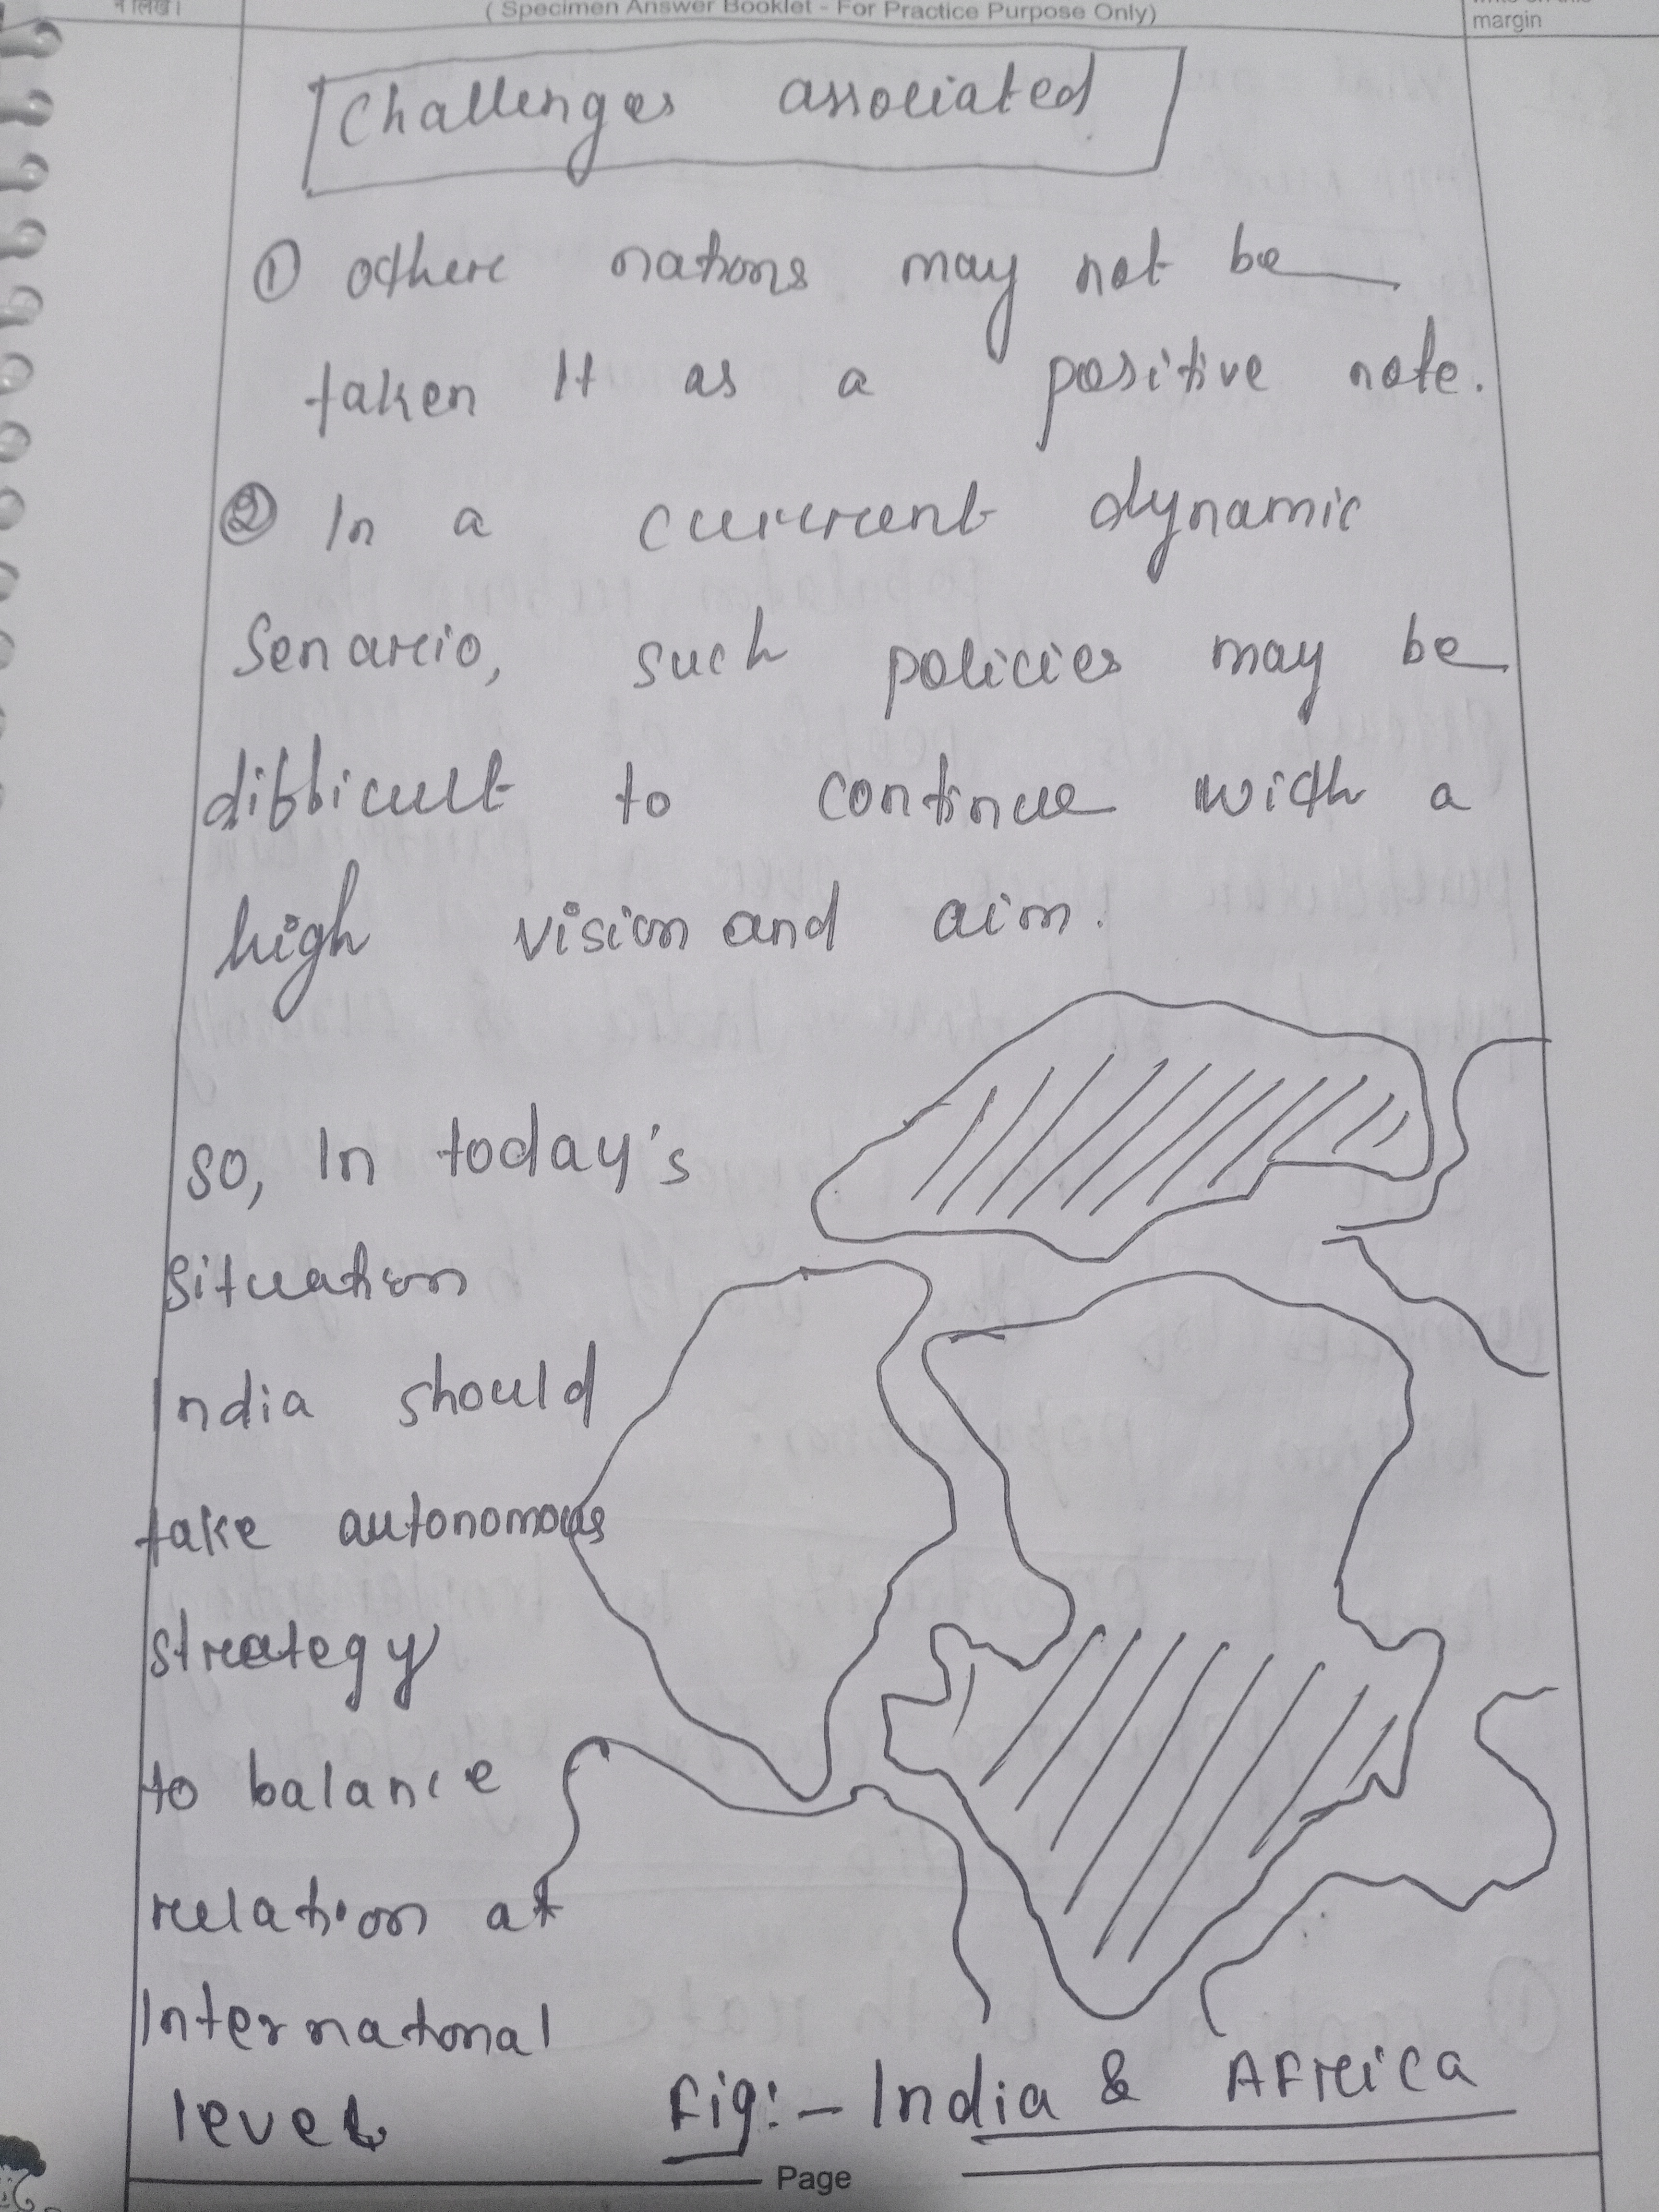 न लिखें।
( Specimen Answer Booklet - For Practice Purpose Only)
margin
Challenges associated
① Other nations may not be
taken It as a positive note.
② In a current dynamic
Senario, such policies may be
difficult to continue with a
high vision and aim.
So, In today's
situation
India should
take autonomous
strategy
to balance
relation at
International
level
Fig:- India & Africa
Page